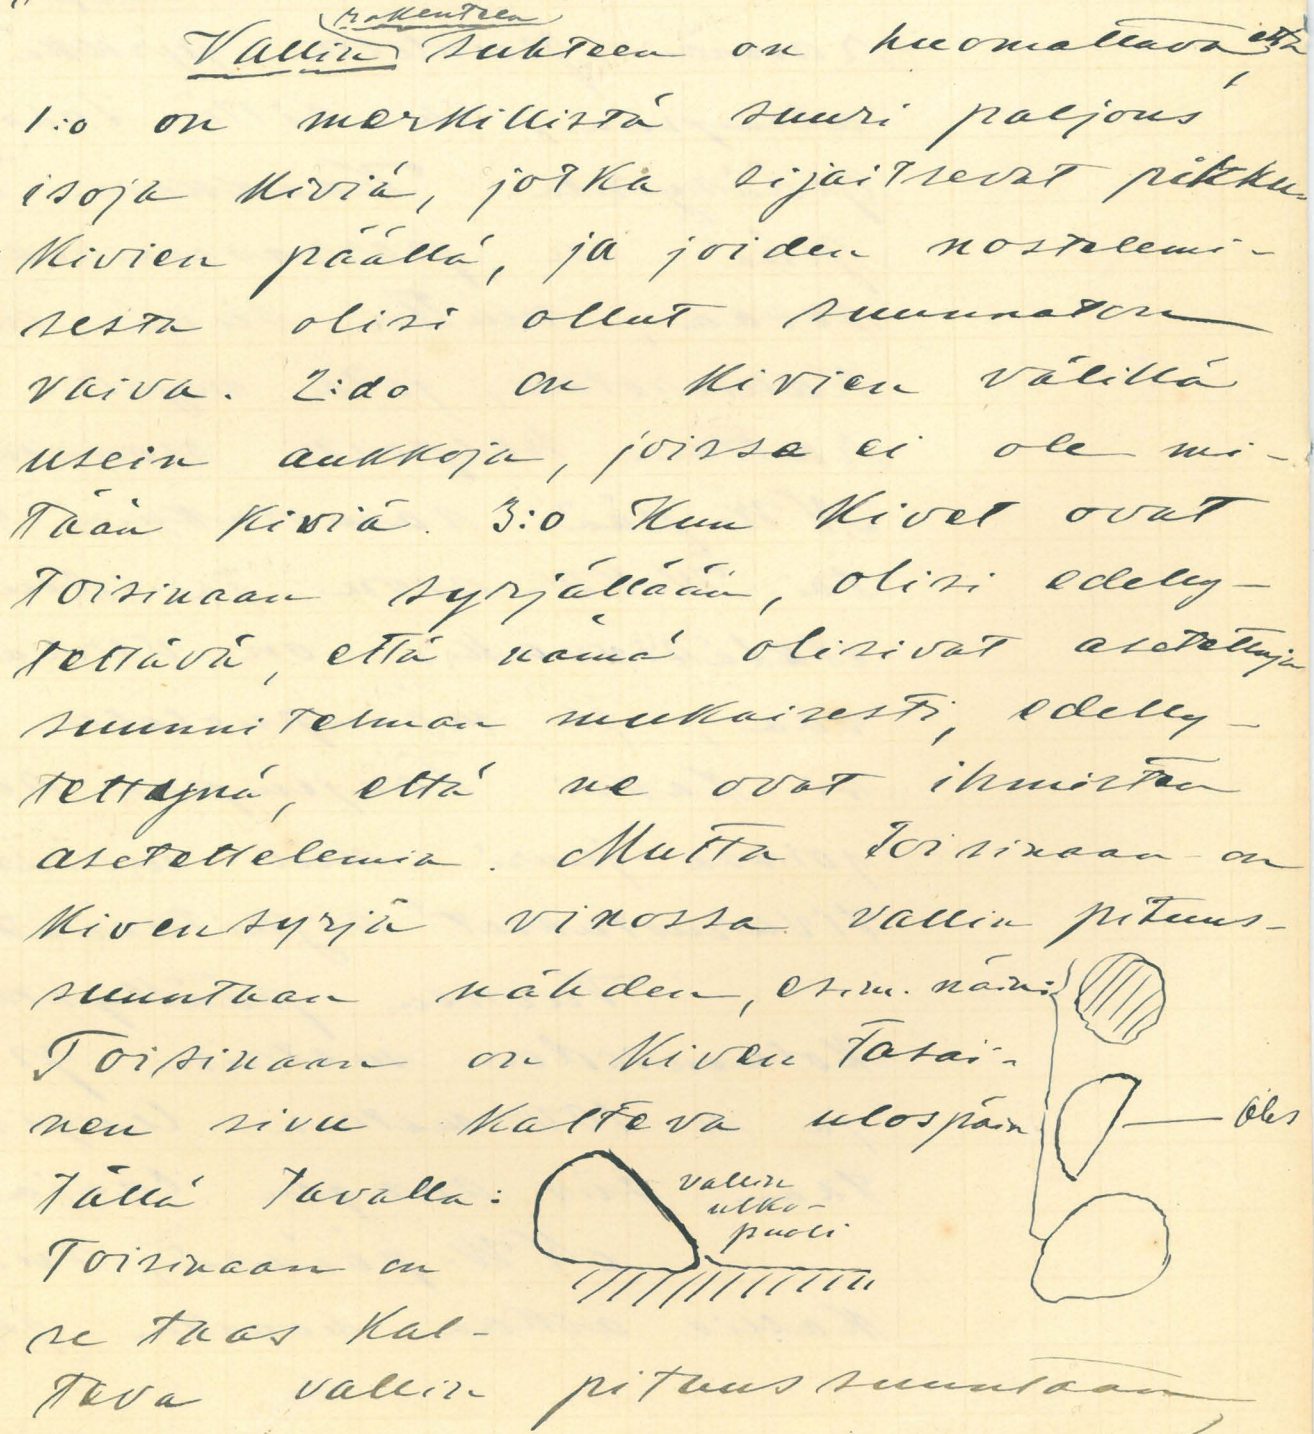 rakenteen
Vallin suhteen on huomattava, että
1:o on merkillistä suuri paljous
isoja kiviä, jotka sijaitsevat pikku-
kivien päällä, ja joiden nostelemi-
sesta olisi ollut suunnaton
vaiva. 2:do on kivien välillä
usein aukkoja, joissa ei ole mi-
tään kiviä. 3:o Kun kivet ovat
toisinaan syrjällään, olisi edelly-
tettävä, että nämä olisivat asetettuja
suunnitelman mukaisesti, edelly-
tettäynä, että ne ovat ihmisten
asetettelemia. Mutta toisinaan on
kivensyrjä vinossa vallin pituus-
suuntaan nähden, esim. näin:
Toisinaan on kiven tasai-
nen sivu kalteva ulospäin
tällä tavalla:
vallin
ulko-
puoli
Toisinaan on
se taas kal-
teva vallin pituussuuntaan,